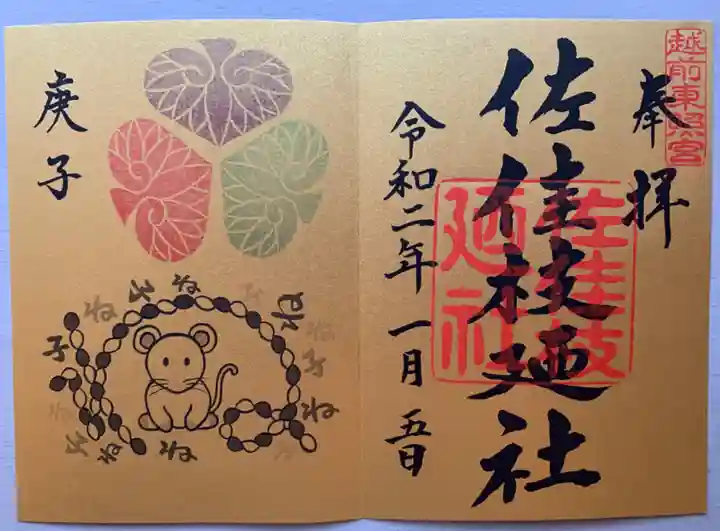 越前東照宮
奉拝
佐佳枝廼社
佐佳枝
廼社
令和二年一月五日
庚子
子
ね
ね
ね
ね
ね
子